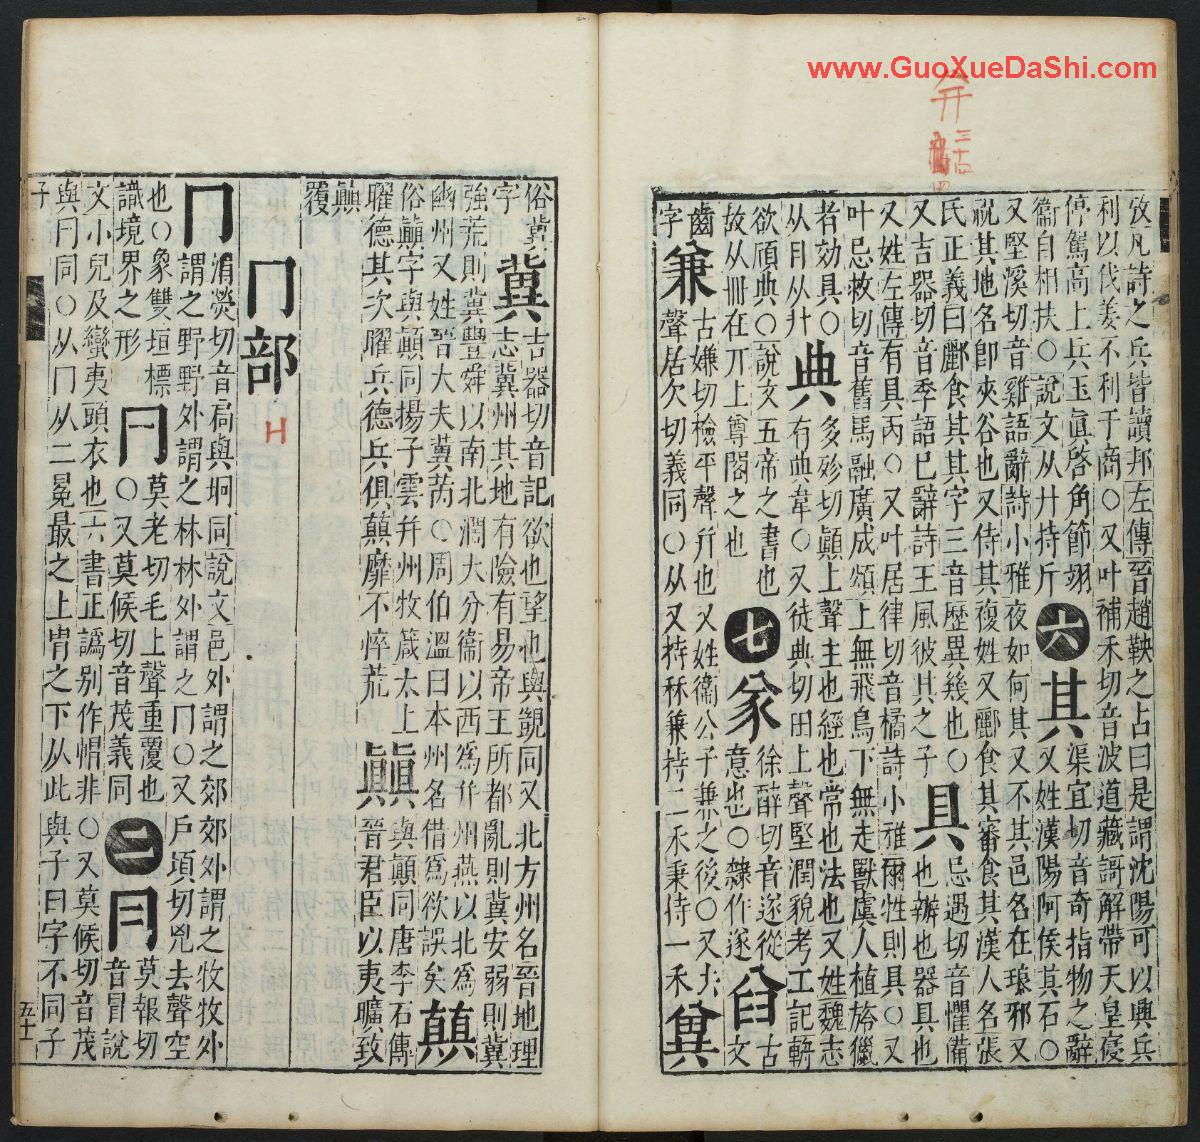 www.GuoXueDaShi.com
攷凡詩之兵皆讀邦左傳晉趙鞅之占曰是謂沈陽可以興兵
利以伐姜不利于商○又叶補禾切音波道藏謌解帶天皇寢
停駕高上兵玉眞啓角節翊
衞自相扶○說文从廾持斤
六
其
渠宜切音奇指物之辭
又姓漢陽阿侯其石○
又堅溪切音雞語辭詩小雅夜如何其又不其邑名在琅邪又
祝其地名卽夾谷也又侍其複姓又酈食其審食其漢人名張
氏正義曰酈食其其字三音歷異幾也○
又吉器切音季語巳辭詩王風彼其之子
具
忌遇切音懼備
也辦也器具也
又姓左傳有具丙○又叶居律切音橘詩小雅爾牲則具○又
叶忌救切音舊馬融廣成頌上無飛鳥下無走獸虞人植旍獵
者效具○
从月从廾
典
多殄切顚上聲主也經也常也法也又姓魏志
有典韋○又徒典切田上聲堅潤貌考工記輈
欲頎典○說文五帝之書也
故从冊在丌上尊閣之也
七
㒸
徐醉切音遂從
意也○隸作遂
古
文
齒
字
兼
古嫌切檢平聲幷也又姓衞公子兼之後○又去
聲居欠切義同○从又持秝兼持二禾秉持一禾
兾
俗冀
字
冀
吉器切音記欲也望也與覬同又北方州名晉地理
志冀州其地有險有易帝王所都亂則冀安弱則冀
強荒則冀豐舜以南北濶大分衞以西爲幷州燕以北爲
幽州又姓晉大夫冀芮○周伯溫曰本州名借爲欲誤矣
俗顚字與顚同揚子雲幷州牧箴太上
曜德其次曜兵德兵俱顚靡不悴荒
與顚同唐李石傳
晉君臣以夷曠致
顚
覆
冂部
H
冂
涓熒切音局與坰同說文邑外謂之郊郊外謂之牧牧外
謂之野野外謂之林林外謂之冂○又戶頃切兇去聲空
也○象雙垣標
識境界之形
𠔼
莫老切毛上聲重覆也
○又莫候切音茂義同
二
冃
莫報切
音冒說
文小兒及蠻夷頭衣也六書正譌别作帽非○又莫候切音茂
與冃同○从冂从二冕最之上冑之下从此與子曰字不同子
子
五十